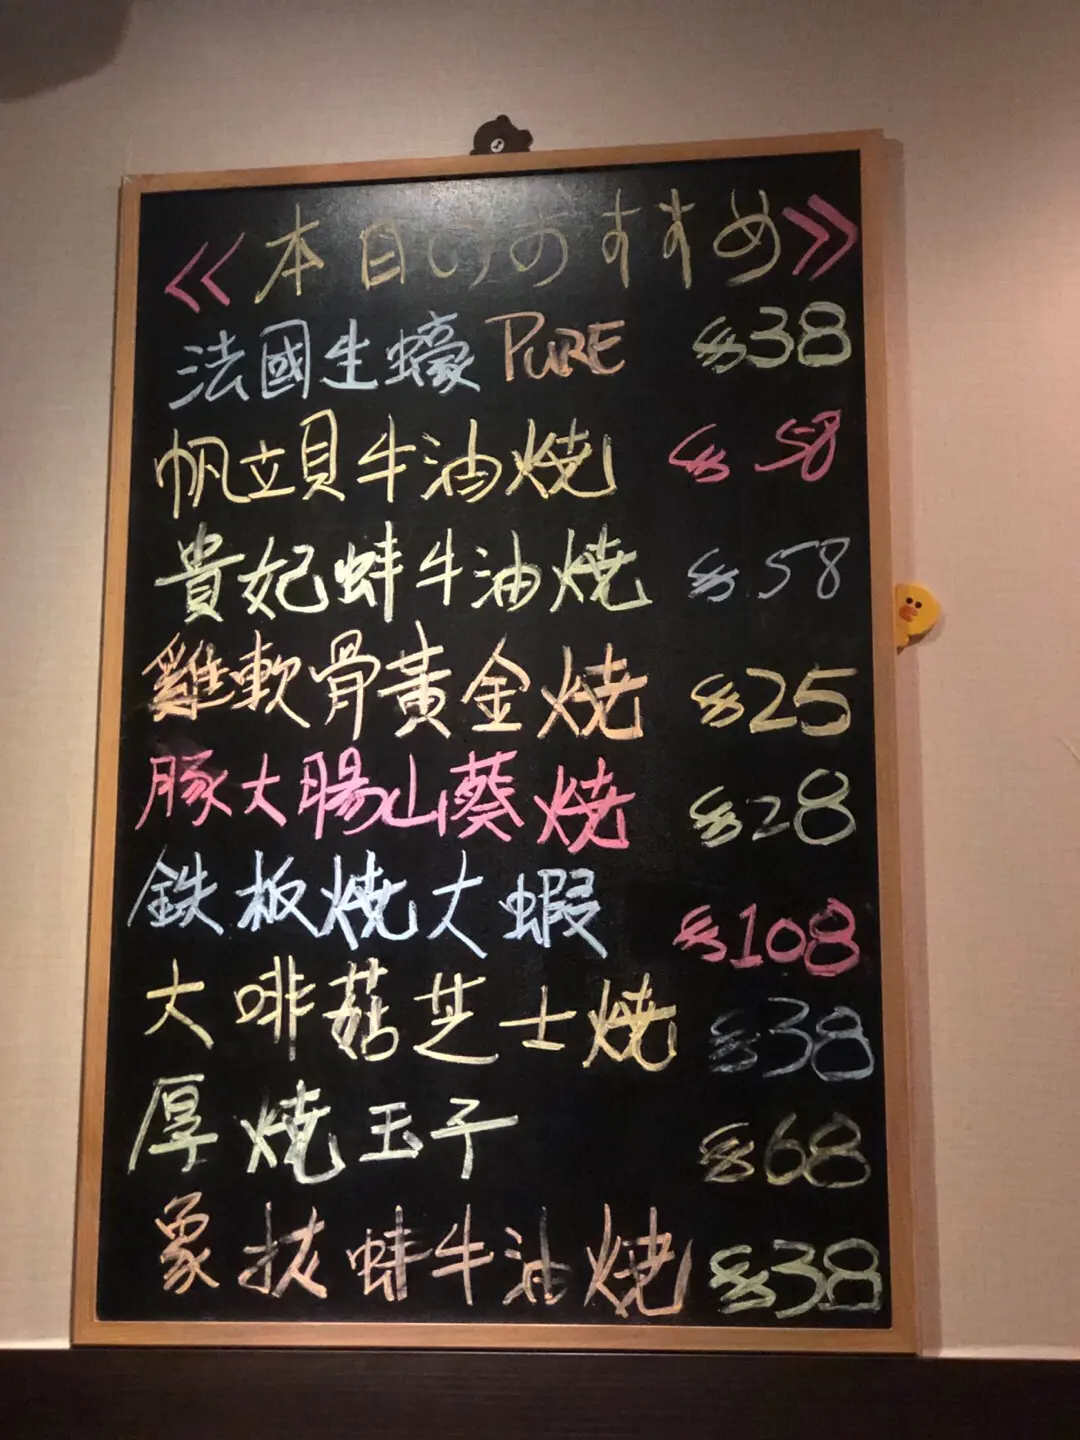 《本日のおすすめ》
法國生蠔 PURE $38
帆立貝牛油燒 $58
貴妃蚌牛油燒 $58
雞軟骨黃金燒 $25
豚大腸山葵燒 $28
鉄板燒大蝦 $108
大啡菇芝士燒 $38
厚燒玉子 $68
象拔蚌牛油燒 $38